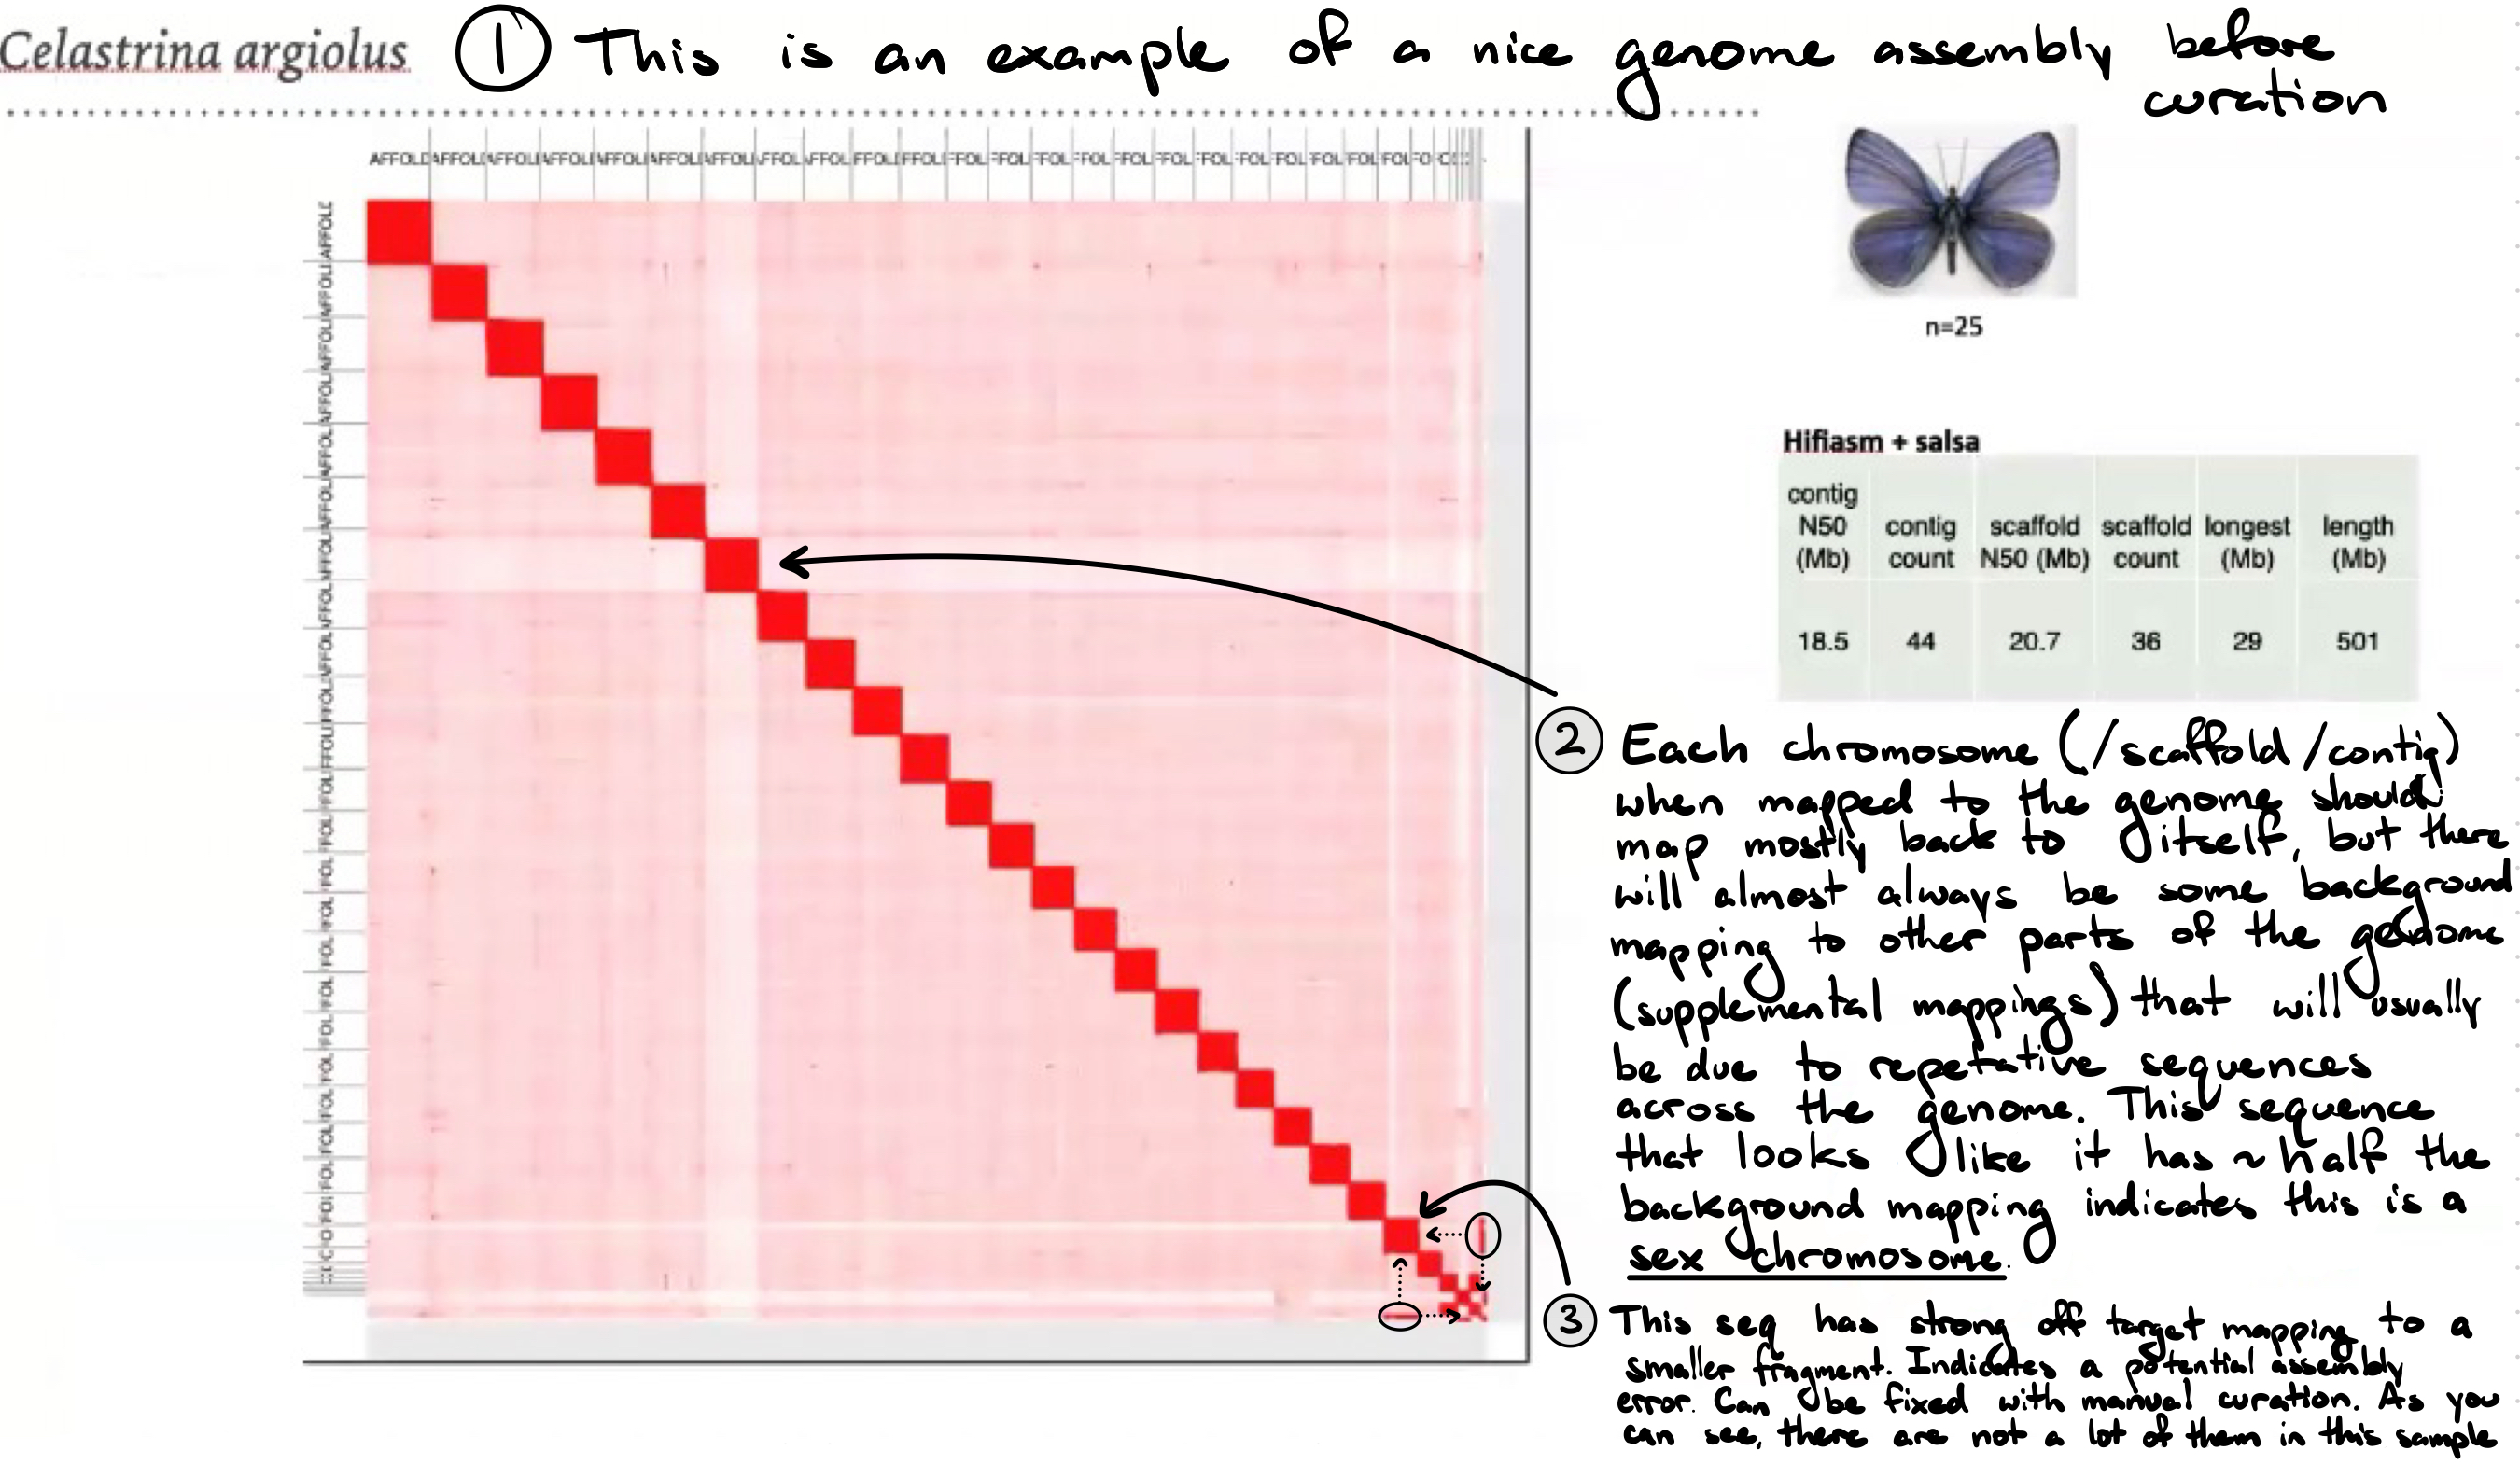 Celastrina argiolus
① This is an example of a nice genome assembly before
curation
AFFOLD AFFOLI AFFOLI AFFOLI AFFOLI AFFOLI AFFOLI AFFOL AFFOL FFOLI FFOLI FFOL FFOL FFOL FFOL FFOL FFOL FFOL FOL FFOL FOL FOL FOL FO
n=25
Hifiasm + salsa
contig N50 (Mb)
contig count
scaffold N50 (Mb)
scaffold count
longest (Mb)
length (Mb)
18.5 44 20.7 36 29 501
② Each chromosome (/scaffold/contig)
when mapped to the genome should
map mostly back to itself, but there
will almost always be some background
mapping to other parts of the genome
(supplemental mappings) that will usually
be due to repetative sequences
across the genome. This sequence
that looks like it has ~ half the
background mapping indicates this is a
sex chromosome.
③ This seq has strong off target mapping to a
smaller fragment. Indicates a potential assembly
error. Can be fixed with manual curation. As you
can see, there are not a lot of them in this sample